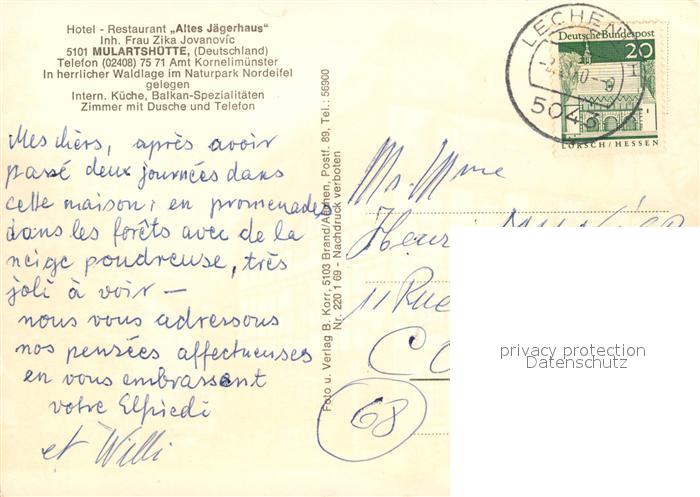 Hotel - Restaurant „Altes Jägerhaus"
Inh. Frau Zika Jovanovíc
5101 MULARTSHÜTTE, (Deutschland)
Telefon (02408) 75 71 Amt Kornelimünster
In herrlicher Waldlage im Naturpark Nordeifel
gelegen
Intern. Küche, Balkan-Spezialitäten
Zimmer mit Dusche und Telefon
Mes chers, après avoir
passé deux journées dans
cette maison, en promenades
dans les forêts avec de la
neige poudreuse, très
joli à voir —
nous vous adressons
nos pensées affectueuses
en vous embrassant
votre Elfriedi
et Willi
Foto u. Verlag B. Korr, 5103 Brand/Aachen, Postf. 89, Tel.: 56900
Nr. 220 1 69 - Nachdruck verboten
LECHEN
5043
Deutsche Bundespost
20
LORSCH/HESSEN
Mr. Mme
Henri
11 Rue
CO
68
privacy protection
Datenschutz